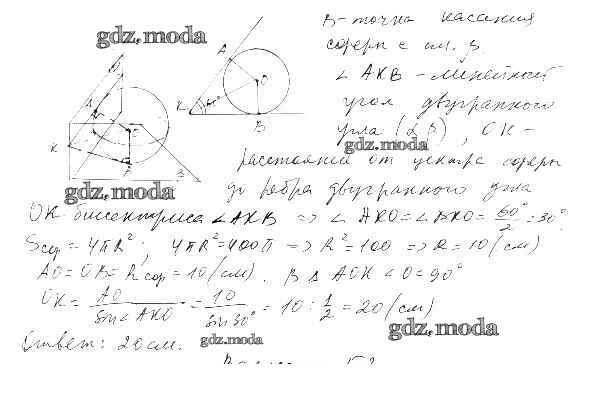 gdz.moda
B - точка касания
сферы с пл. β
∠ AKB - линейный
угол двугранного
угла (αβ), OK -
gdz.moda
расстояние от центра сферы
gdz.moda
до ребра двугранного угла
OK биссектриса ∠AKB => ∠ AKO = ∠BKO = 60°/2 = 30°.
Sсф = 4πR²; 4πR² = 400π => R² = 100 => R = 10 (см)
AO = OB = Rсф = 10 (см). В Δ AOK ∠O = 90°
OK = AO / sin∠AKO = 10 / sin 30° = 10 : 1/2 = 20 (см)
gdz.moda
Ответ: 20 см.
gdz.moda
A
O
K
60°
B
K